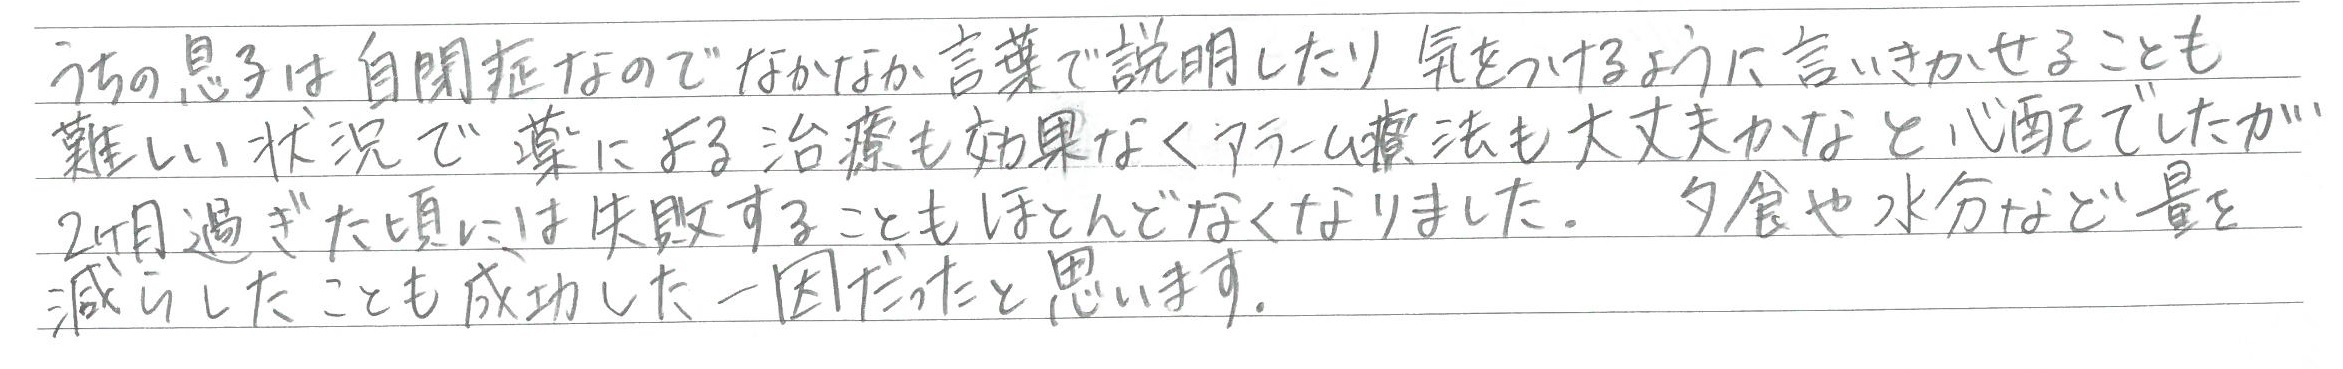 うちの息子は自閉症なのでなかなか言葉で説明したり気をつけるように言いきかせることも
難しい状況で薬による治療も効果なくアラーム療法も大丈夫かなと心配でしたが
2ヶ月過ぎた頃には失敗することもほとんどなくなりました。 夕食や水分など量を
減らしたことも成功した一因だったと思います。